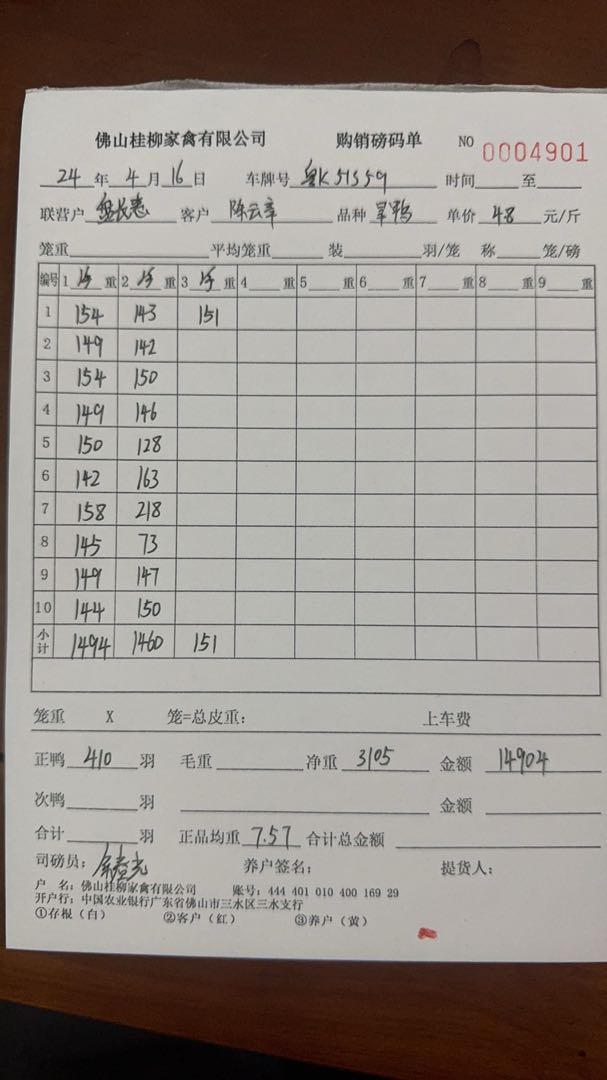 佛山桂柳家禽有限公司 购销磅码单 NO 0004901
24 年 4 月 16 日 车牌号 粤K51S59 时间 至
联营户 客户 陈云章 品种 旱鸭 单价 4.8 元/斤
笼重 平均笼重 装 羽/笼 称 笼/磅
编号 1 重 2 重 3 重 4 重 5 重 6 重 7 重 8 重 9 重
1 154 143 151
2 149 142
3 154 150
4 149 146
5 150 128
6 142 163
7 158 218
8 145 73
9 149 147
10 144 150
小计 1494 1460 151
笼重 X 笼=总皮重： 上车费
正鸭 410 羽 毛重 净重 3105 金额 14904
次鸭 羽 金额
合计 羽 正品均重 7.57 合计总金额
司磅员： 养户签名： 提货人：
户 名：佛山桂柳家禽有限公司 账号：444 401 010 400 169 29
开户行：中国农业银行广东省佛山市三水区三水支行
①存根（白） ②客户（红） ③养户（黄）